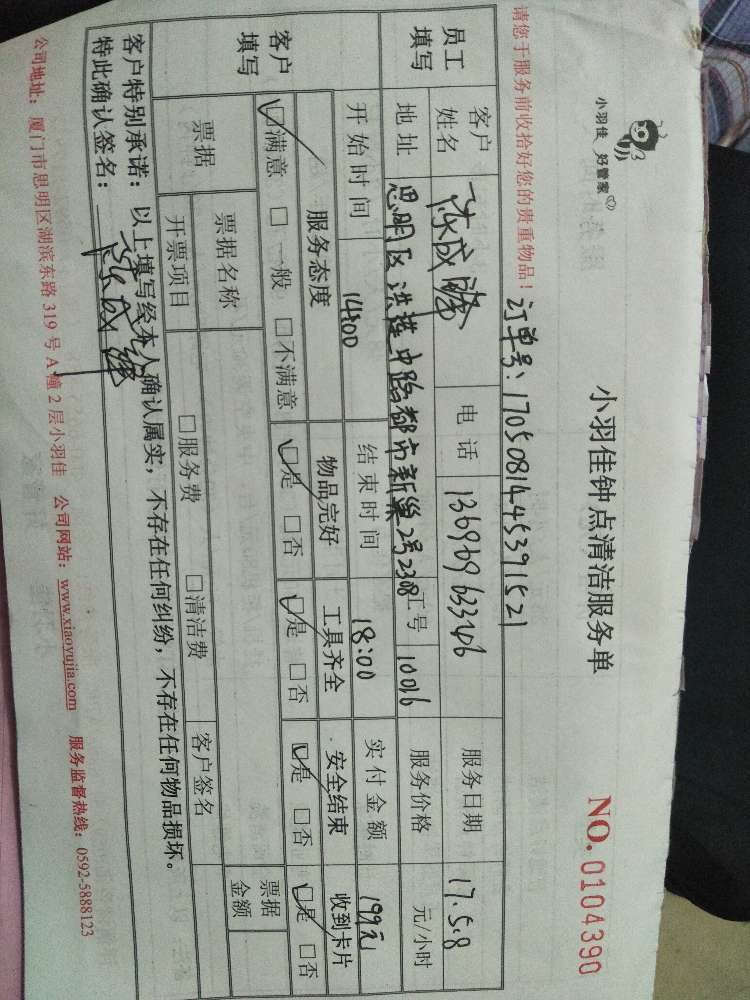 小羽佳 好管家
小羽佳钟点清洁服务单
NO. 0104390
请您于服务前收拾好您的贵重物品！
订单号：1705081445391521
员工填写
客户姓名 陈成 电话 13696963346 服务日期 17.5.8
地址 思明区洪莲中路都市新巢2号2308 工号 10016 服务价格 元/小时
开始时间 14:00 结束时间 18:00 实付金额 199元
客户填写
服务态度 物品完好 工具齐全 安全结束 收到卡片
☑满意 □一般 □不满意 ☑是 □否 ☑是 □否 ☑是 □否 ☑是 □否
票据 票据名称 票据金额
开票项目 □服务费 □清洁费 客户签名
客户特别承诺：以上填写经本人确认属实，不存在任何纠纷，不存在任何物品损坏。
特此确认签名：陈成
公司地址：厦门市思明区湖滨东路319号A幢2层小羽佳 公司网站：www.xiaoyujia.com 服务监督热线：0592-5888123